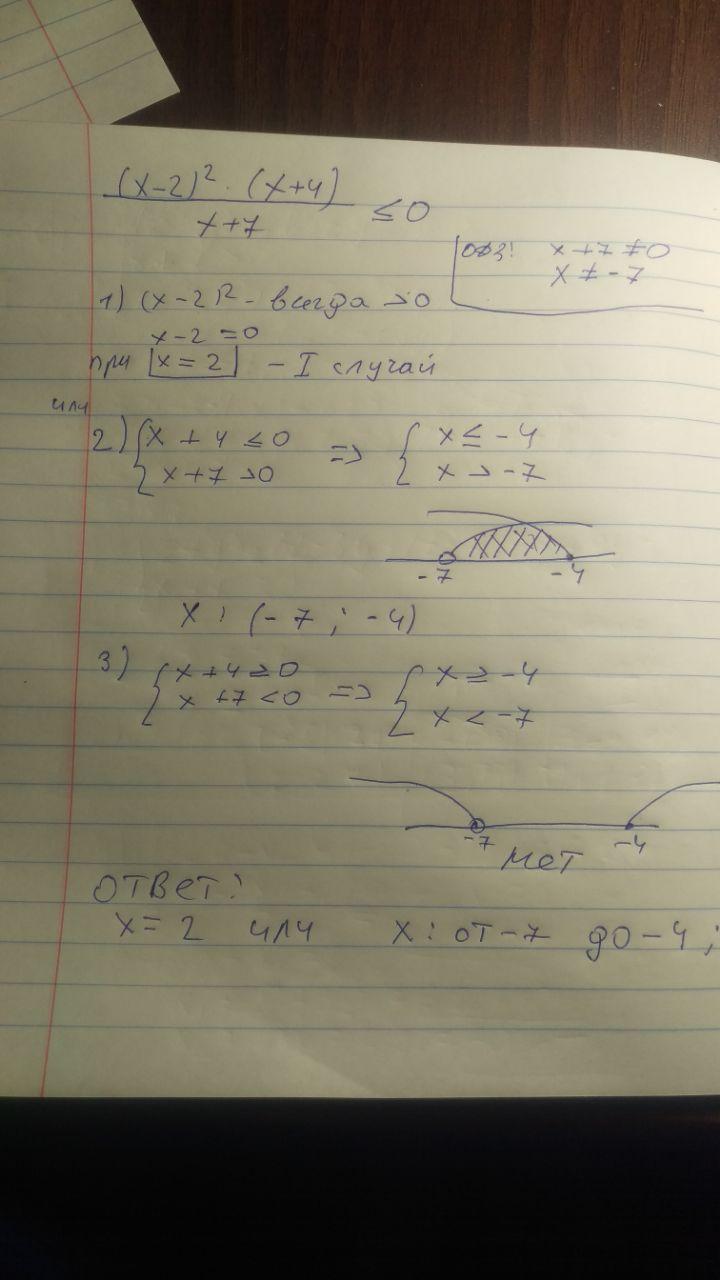 (x-2)² · (x+4)
x+7
≤ 0
ОДЗ: x+7 ≠ 0
x ≠ -7
1) (x-2)² - всегда >0
x-2 = 0
при x = 2 - I случай
или
2) { x + 4 ≤ 0 => { x ≤ -4
x+7 >0 x > -7
-7 -4
x : (-7 ; -4)
3) { x+4 ≥ 0 => { x ≥ -4
x +7 < 0 x < -7
-7 нет -4
Ответ:
x = 2 или x : от -7 до -4 ;